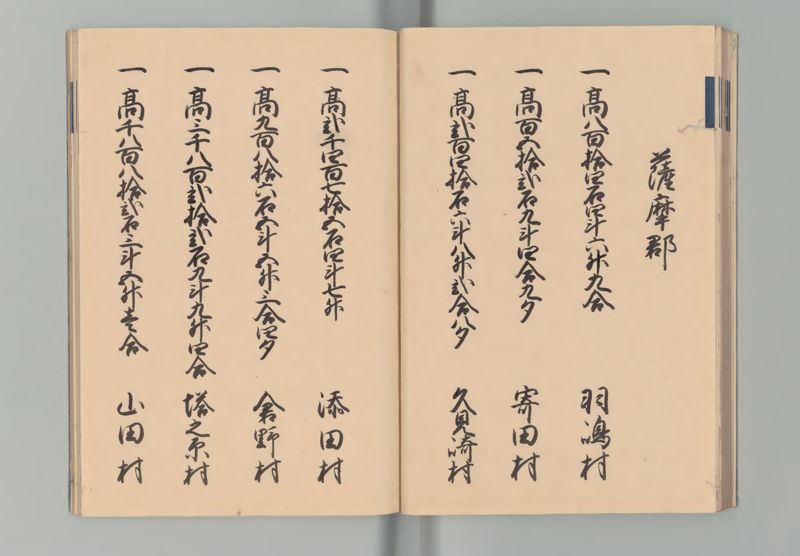 薩摩郡
一高八百拾四石四斗六升九合 羽嶋村
一高百五拾弐石九斗四合九夕 寄田村
一高弐百四拾石六斗八升弐合八夕 久見崎村
一高弐千四百七拾五石四斗七升 添田村
一高九百八拾六石五斗五升三合四夕 倉野村
一高三千八百弐拾弐石九斗九升四合 塔之原村
一高千八百八拾弐石三斗五升壱合 山田村